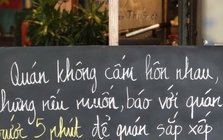 Quán không cấm hôn nhau
nhưng nếu muốn, báo với quán
trước 5 phút để quán sắp xếp